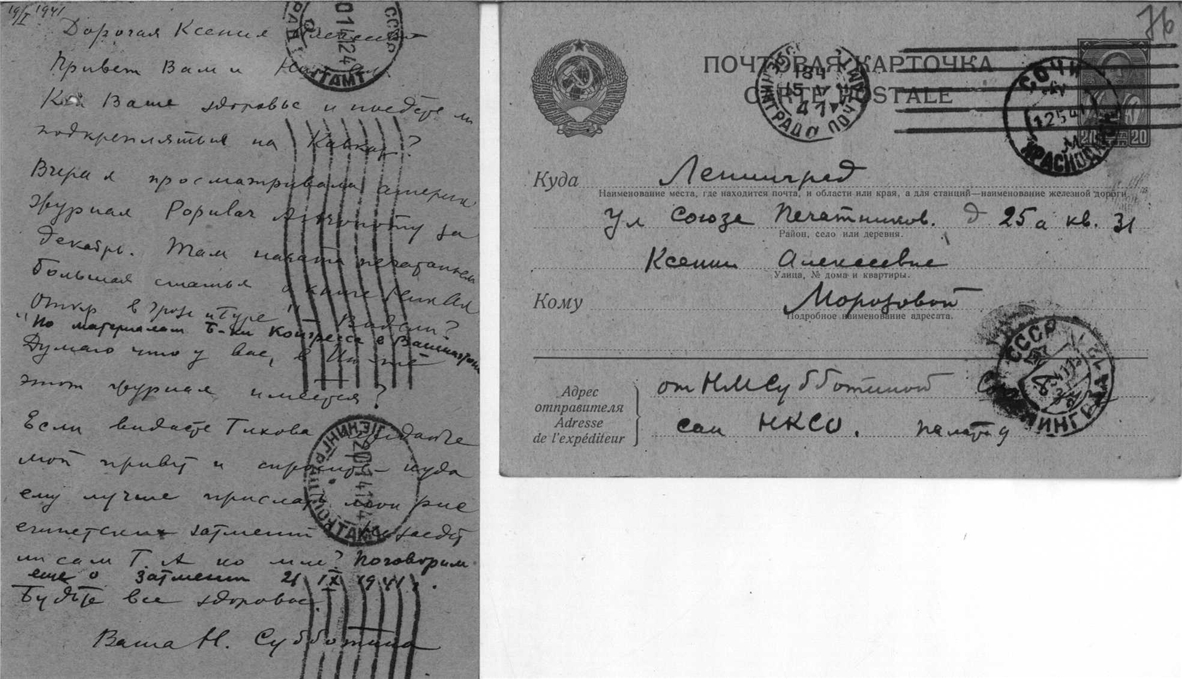 19/I 1941
Дорогая Ксения
Привет Вам и
Как Ваше здоровье и поедете ли
подкрепляться на Кавказ?
Вчера просматривала америк
журнал Popular Astronomy за
декабрь. Там напечатана
большая статья о книге
в грозе и буре! Видели?
"По материалам Б-ки Конгресса в Вашингтоне
Думаю что у вас, в Ин-те
этот журнал имеется?
Если видаете Тихова
мой привет и спросите куда
ему лучше прислать мои рис
египетских затмений
ли сам Г.А ко мне? Поговорим
еще о затмении 21 IX 1941 г.
Будьте все здоровы.
Ваша Н. Субботина
76
ПОЧТОВАЯ КАРТОЧКА
CARTE POSTALE
СОЧИ
КРАСНОДАР
20 20
Куда Ленинград
Наименование места, где находится почта, и области или края, а для станций—наименование железной дороги
ул Союза Печатников. д 25а кв. 31
Район, село или деревня.
Ксении Алексеевне
Улица, № дома и квартиры.
Кому Морозовой
Подробное наименование адресата.
СССР
ЛЕНИНГРАД
Адрес отправителя
Adresse de l'expéditeur
от Н.М Субботиной
сан НКСО. палата 9